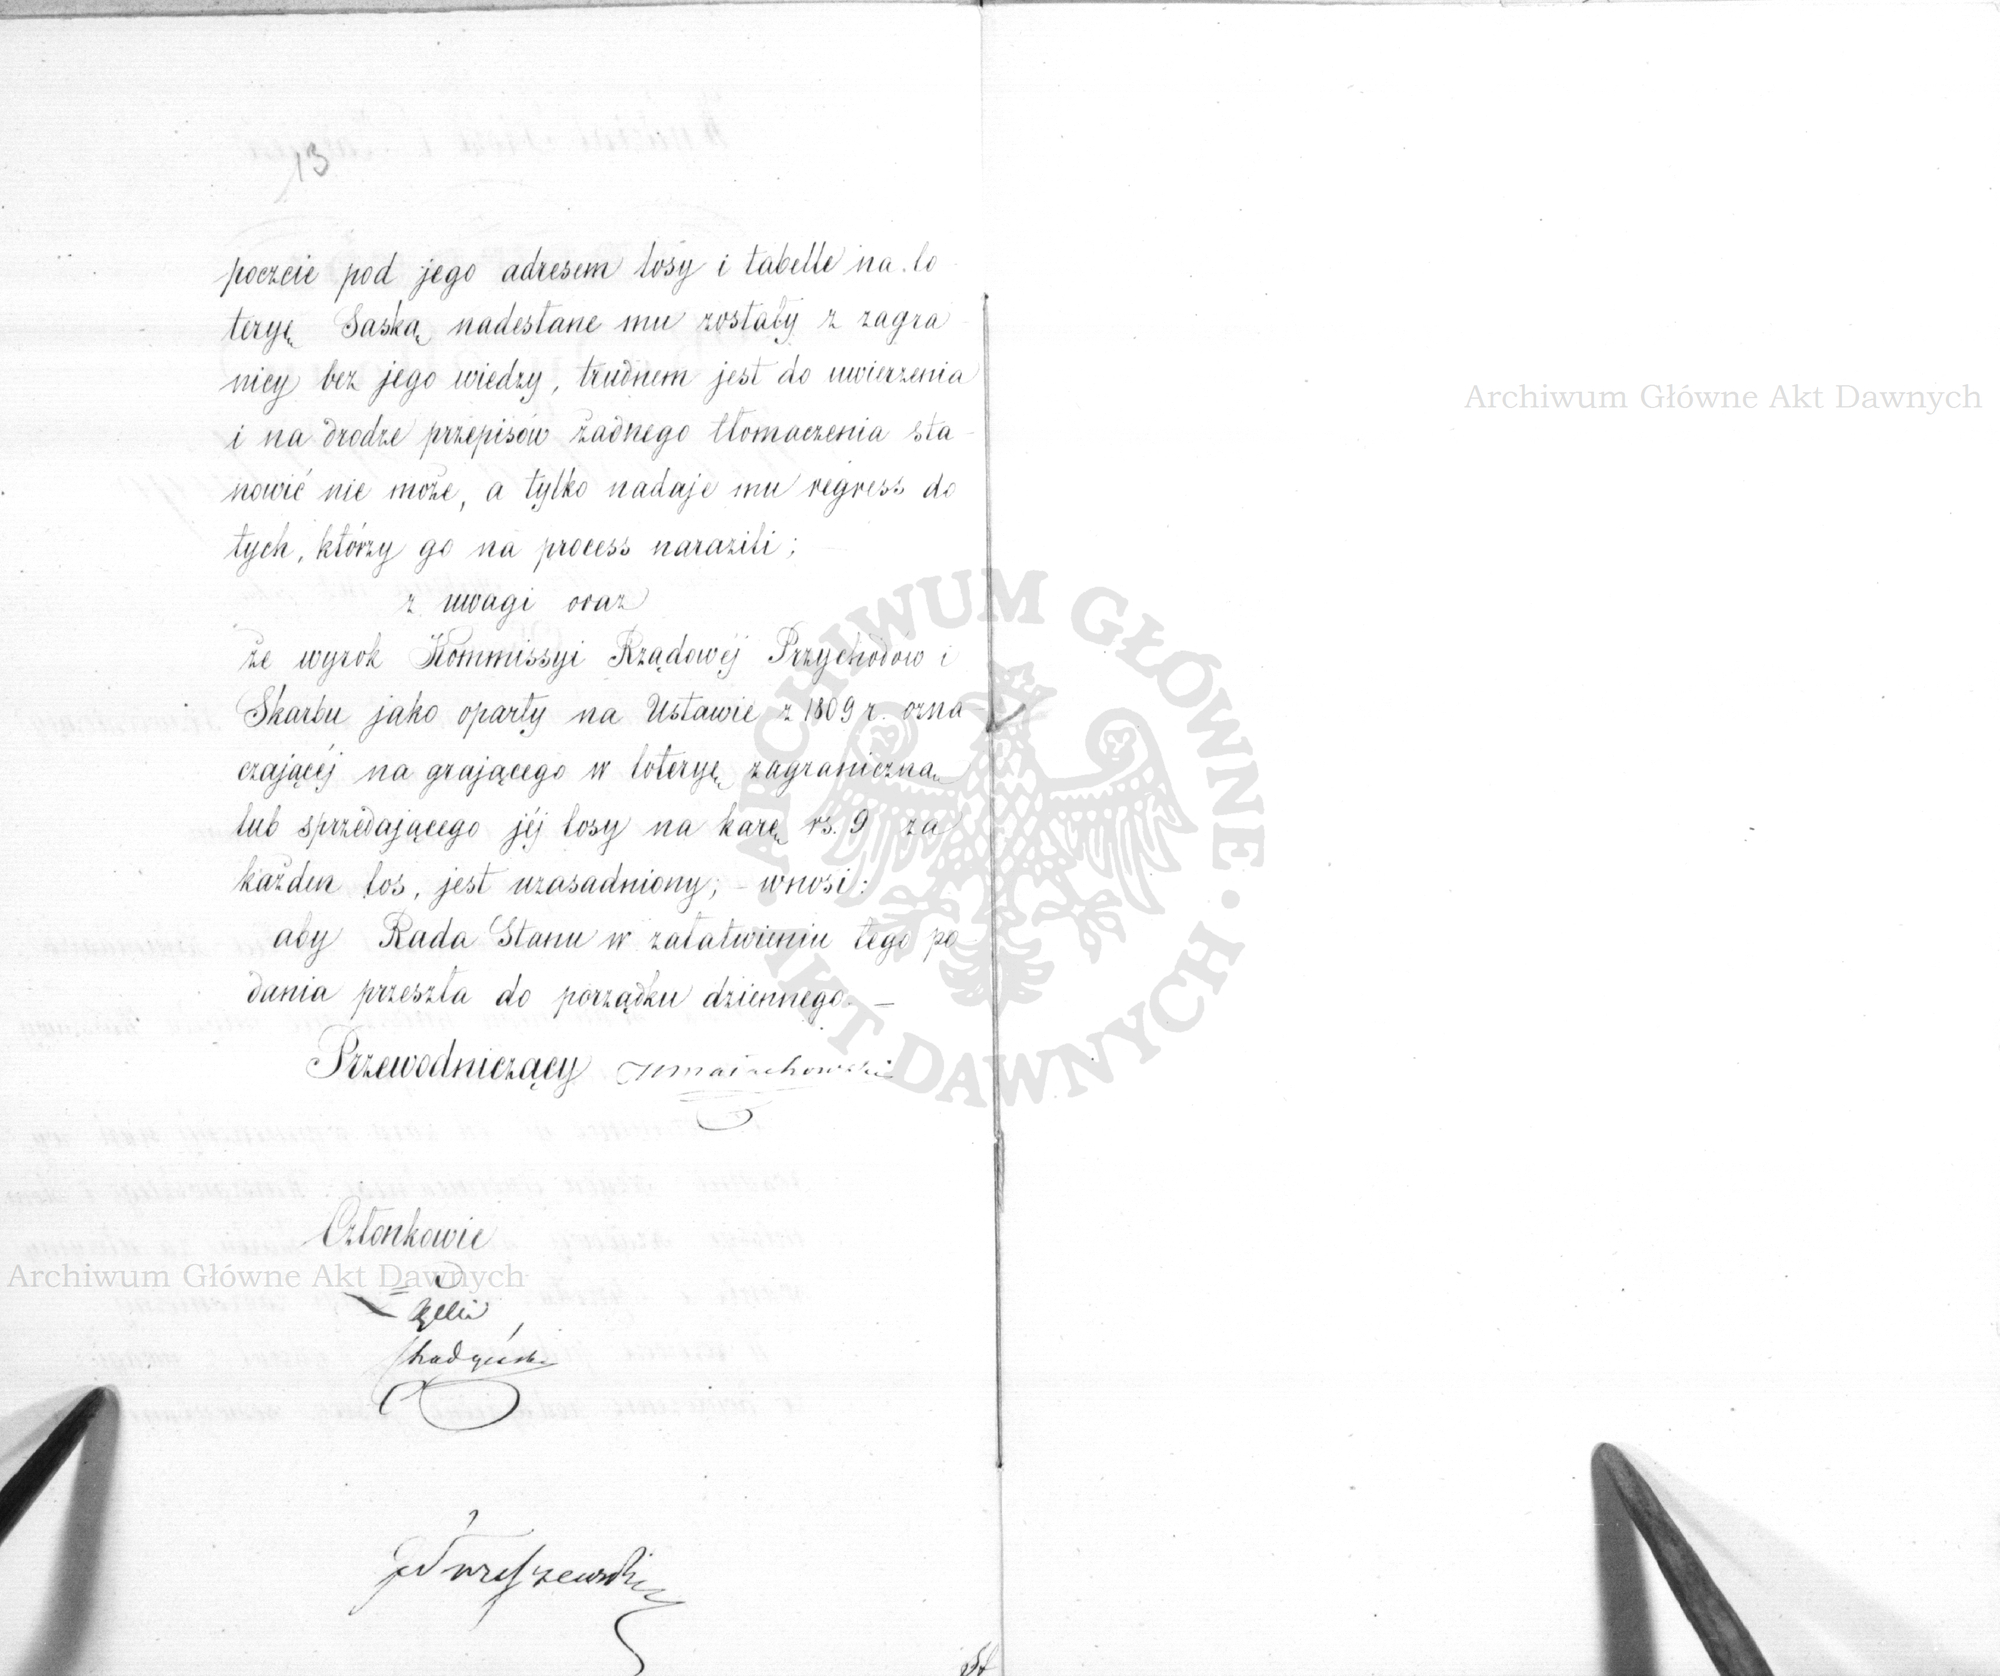 13
poczcie pod jego adresem losy i tabelle na lo
teryę Saską nadesłane mu zostały z zagra
nicy bez jego wiedzy, trudnem jest do uwierzenia
i na drodze przepisów żadnego tłomaczenia sta-
nowić nie może, a tylko nadaje mu regress do
tych, którzy go na process narazili;
z uwagi oraz
że wyrok Kommissyi Rządowéj Przychodów i
Skarbu jako oparty na Ustawie z 1809 r. ozna-
czającéj na grającego w loteryę zagraniczną
lub sprzedającego jéj losy na karę rs. 9 za
każden los, jest uzasadniony; - wnosi:
aby Rada Stanu w załatwieniu tego po
dania przeszła do porządku dziennego. —
Przewodniczący
Członkowie
Archiwum Główne Akt Dawnych
Archiwum Główne Akt Dawnych
ARCHIWUM GŁÓWNE
AKT DAWNYCH